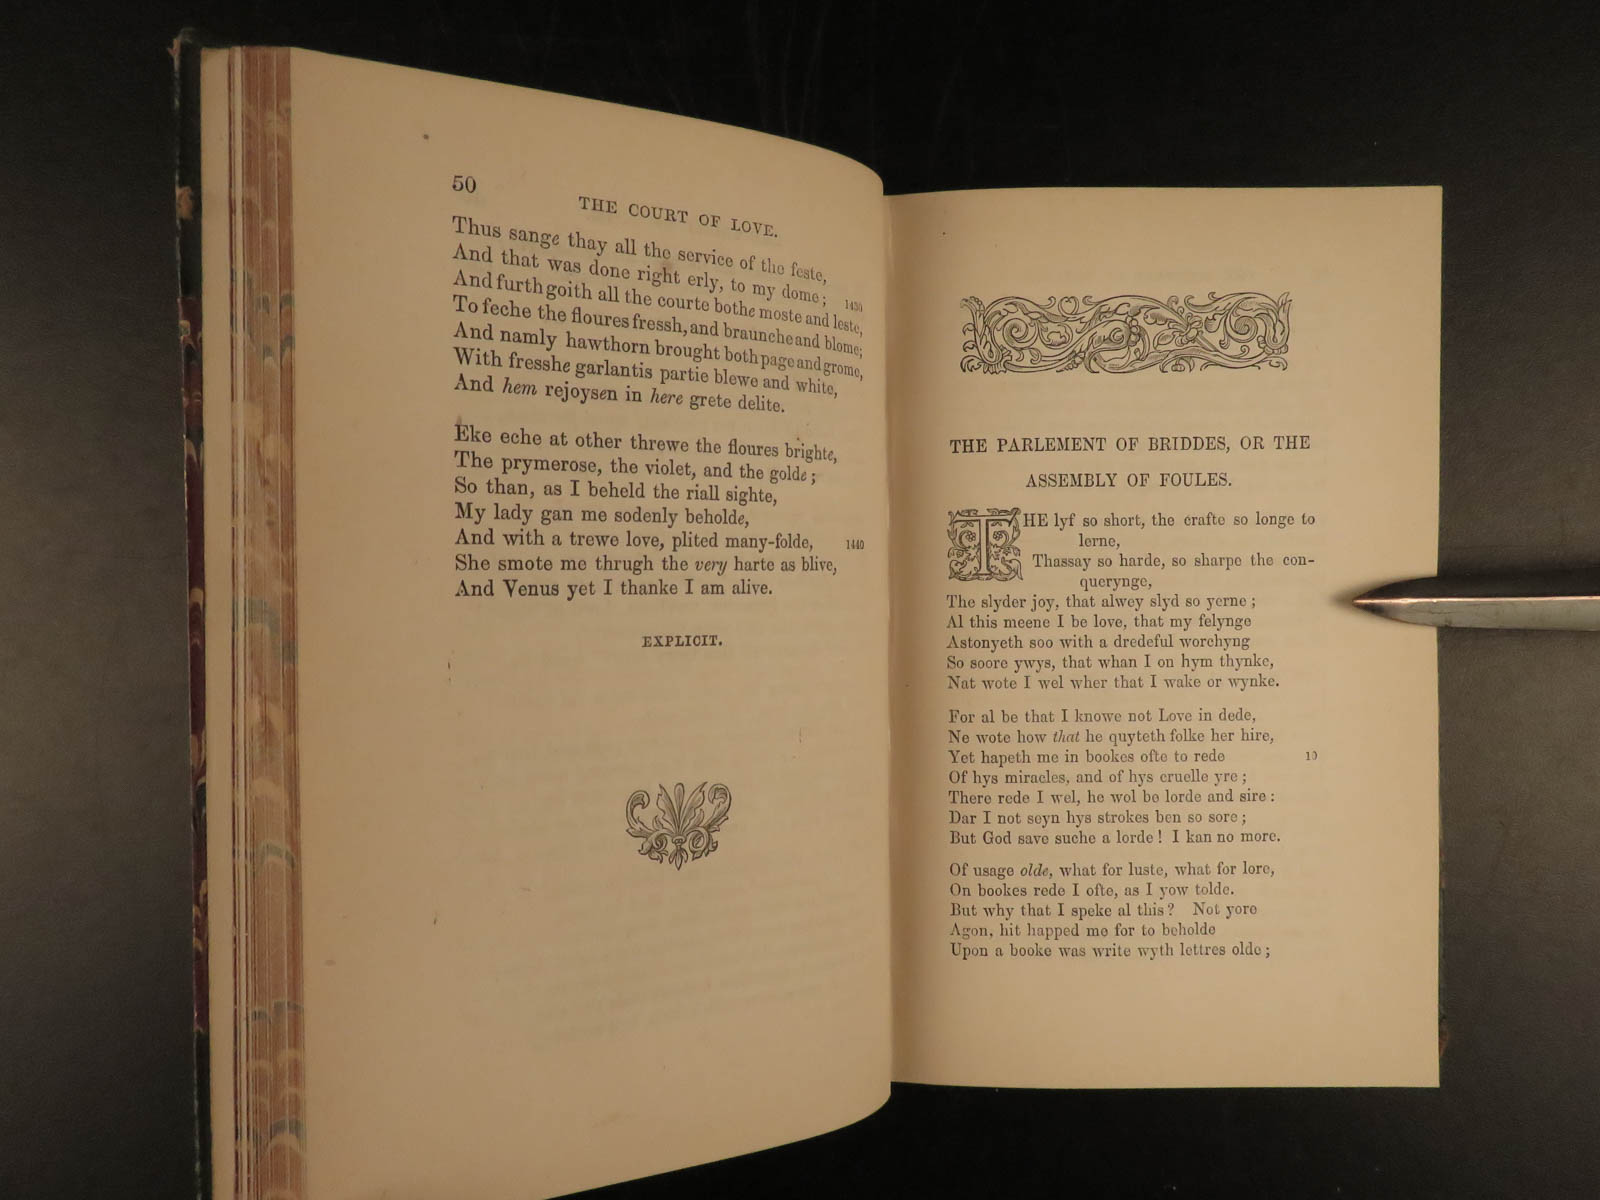 50
THE COURT OF LOVE.
Thus sange thay all the service of the feste,
And that was done right erly, to my dome; 1430
And furth goith all the courte bothe moste and leste,
To feche the floures fressh, and braunche and blome;
And namly hawthorn brought both page and grome,
With fresshe garlantis partie blewe and white,
And hem rejoysen in here grete delite.
Eke eche at other threwe the floures brighte,
The prymerose, the violet, and the golde;
So than, as I beheld the riall sighte,
My lady gan me sodenly beholde,
And with a trewe love, plited many-folde, 1440
She smote me thrugh the very harte as blive,
And Venus yet I thanke I am alive.
EXPLICIT.
THE PARLEMENT OF BRIDDES, OR THE
ASSEMBLY OF FOULES.
THE lyf so short, the crafte so longe to
lerne,
Thassay so harde, so sharpe the con-
querynge,
The slyder joy, that alwey slyd so yerne;
Al this meene I be love, that my felynge
Astonyeth soo with a dredeful worchyng
So soore ywys, that whan I on hym thynke,
Nat wote I wel wher that I wake or wynke.
For al be that I knowe not Love in dede,
Ne wote how that he quyteth folke her hire,
Yet hapeth me in bookes ofte to rede 10
Of hys miracles, and of hys cruelle yre;
There rede I wel, he wol be lorde and sire:
Dar I not seyn hys strokes ben so sore;
But God save suche a lorde! I kan no more.
Of usage olde, what for luste, what for lore,
On bookes rede I ofte, as I yow tolde.
But why that I speke al this? Not yore
Agon, hit happed me for to beholde
Upon a booke was write wyth lettres olde;